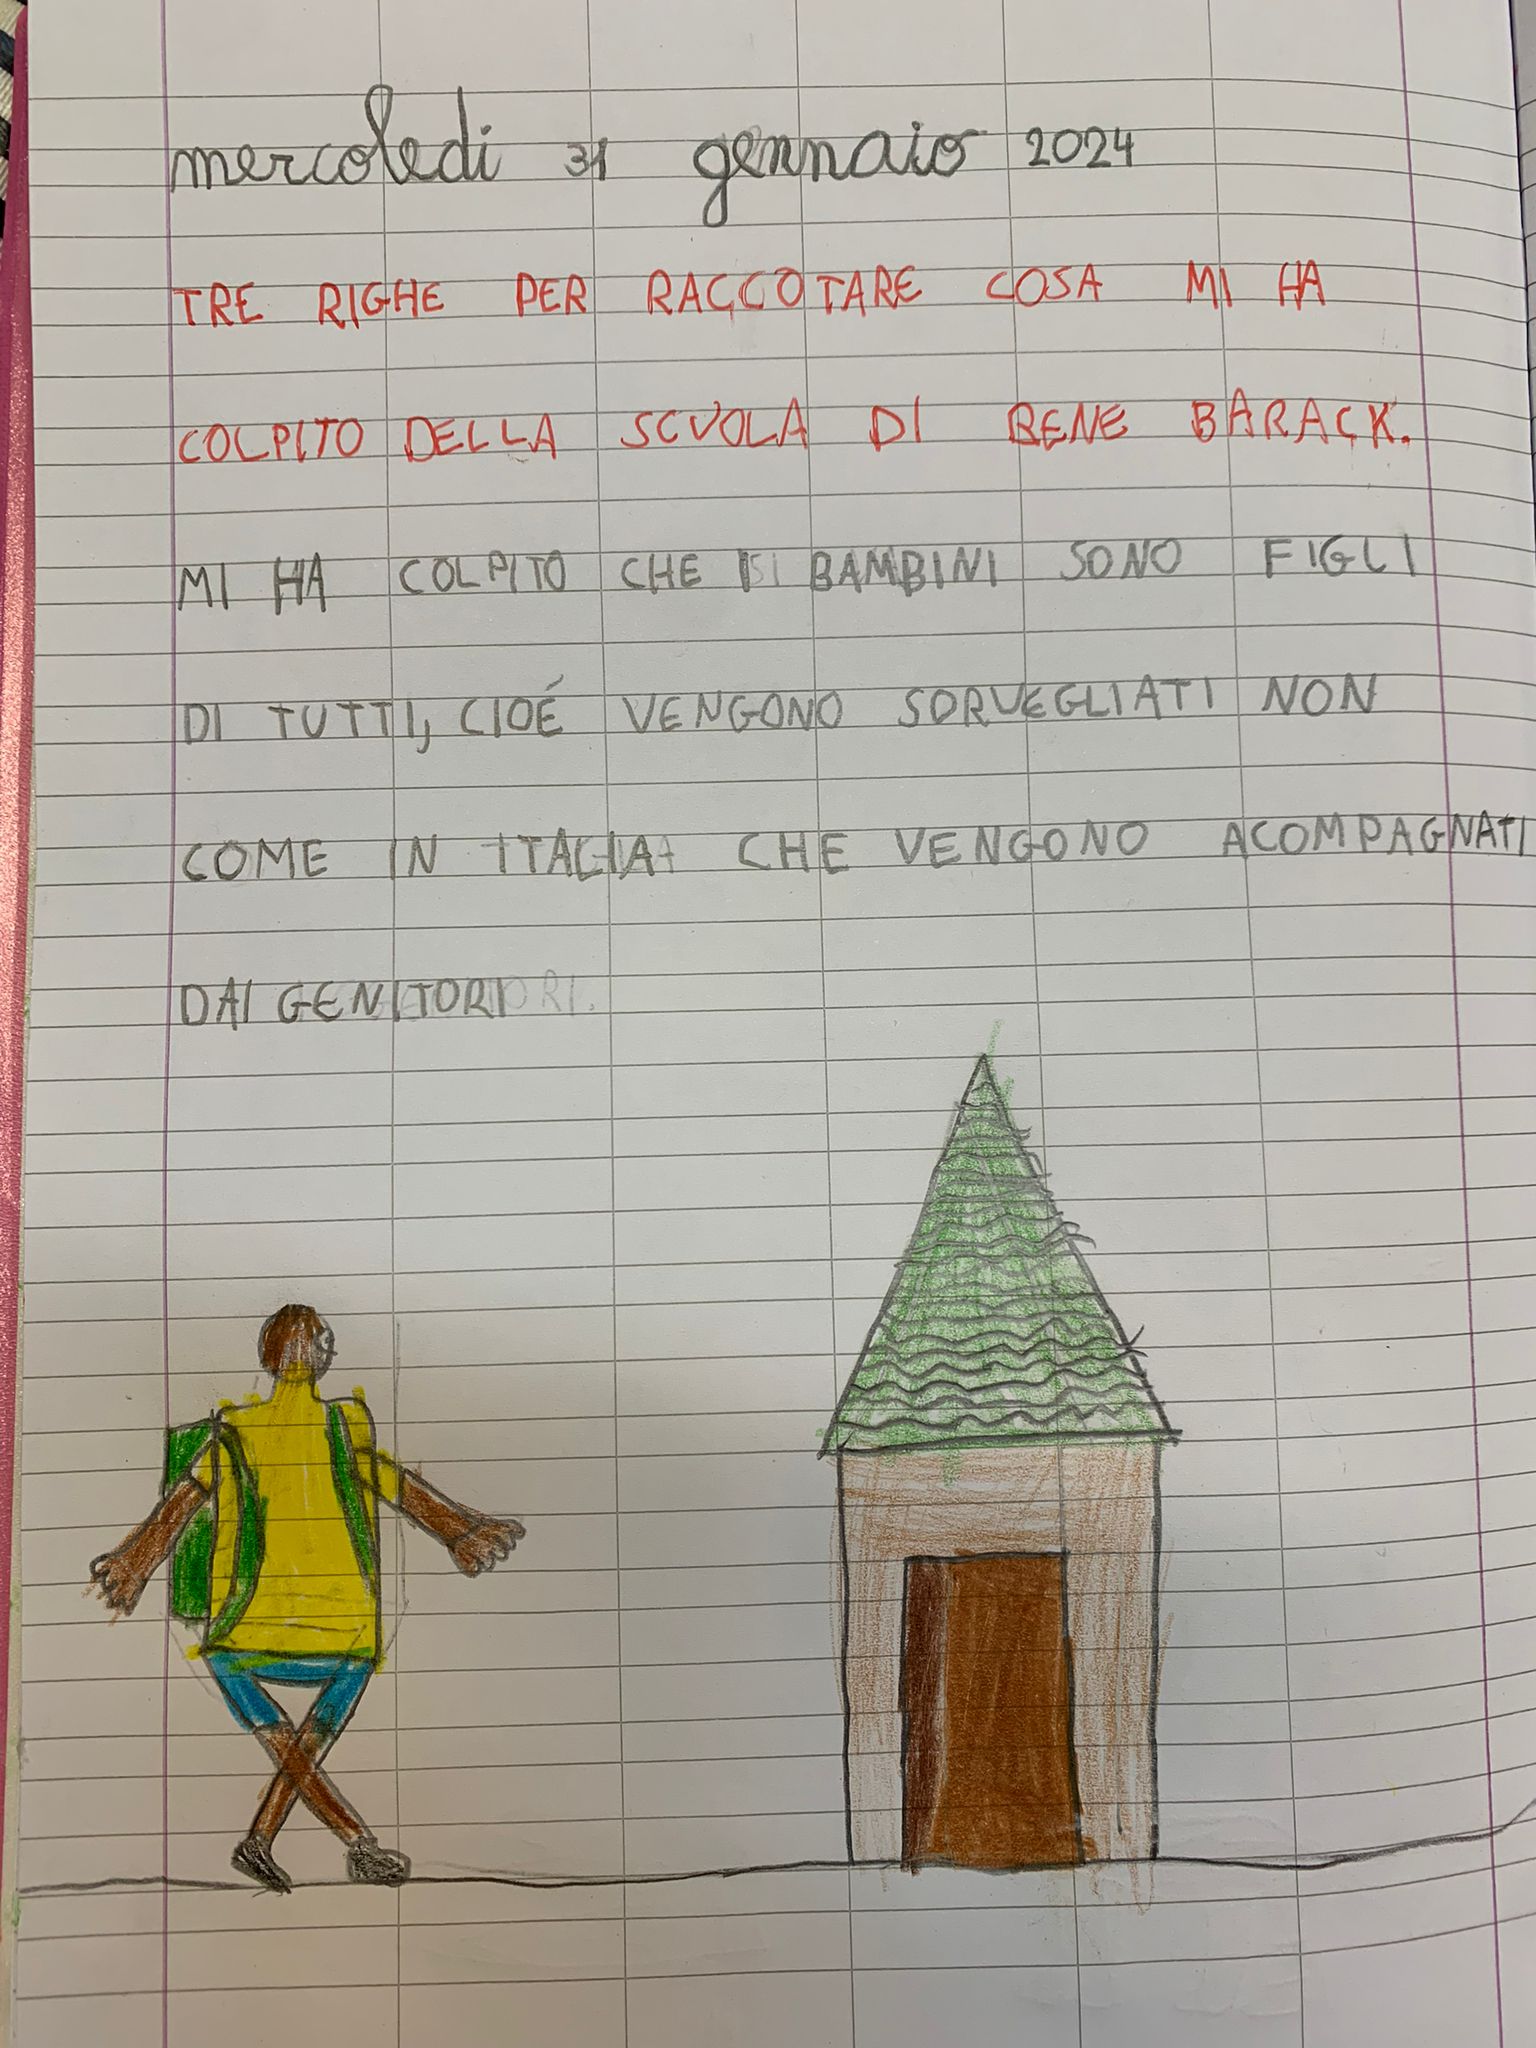 mercoledi 31 gennaio 2024
TRE RIGHE PER RACCOTARE COSA MI HA
COLPITO DELLA SCUOLA DI BENE BARACK.
MI HA COLPITO CHE I BAMBINI SONO FIGLI
DI TUTTI, CIOÉ VENGONO SORVEGLIATI NON
COME IN ITALIA CHE VENGONO ACOMPAGNATI
DAI GENITORI